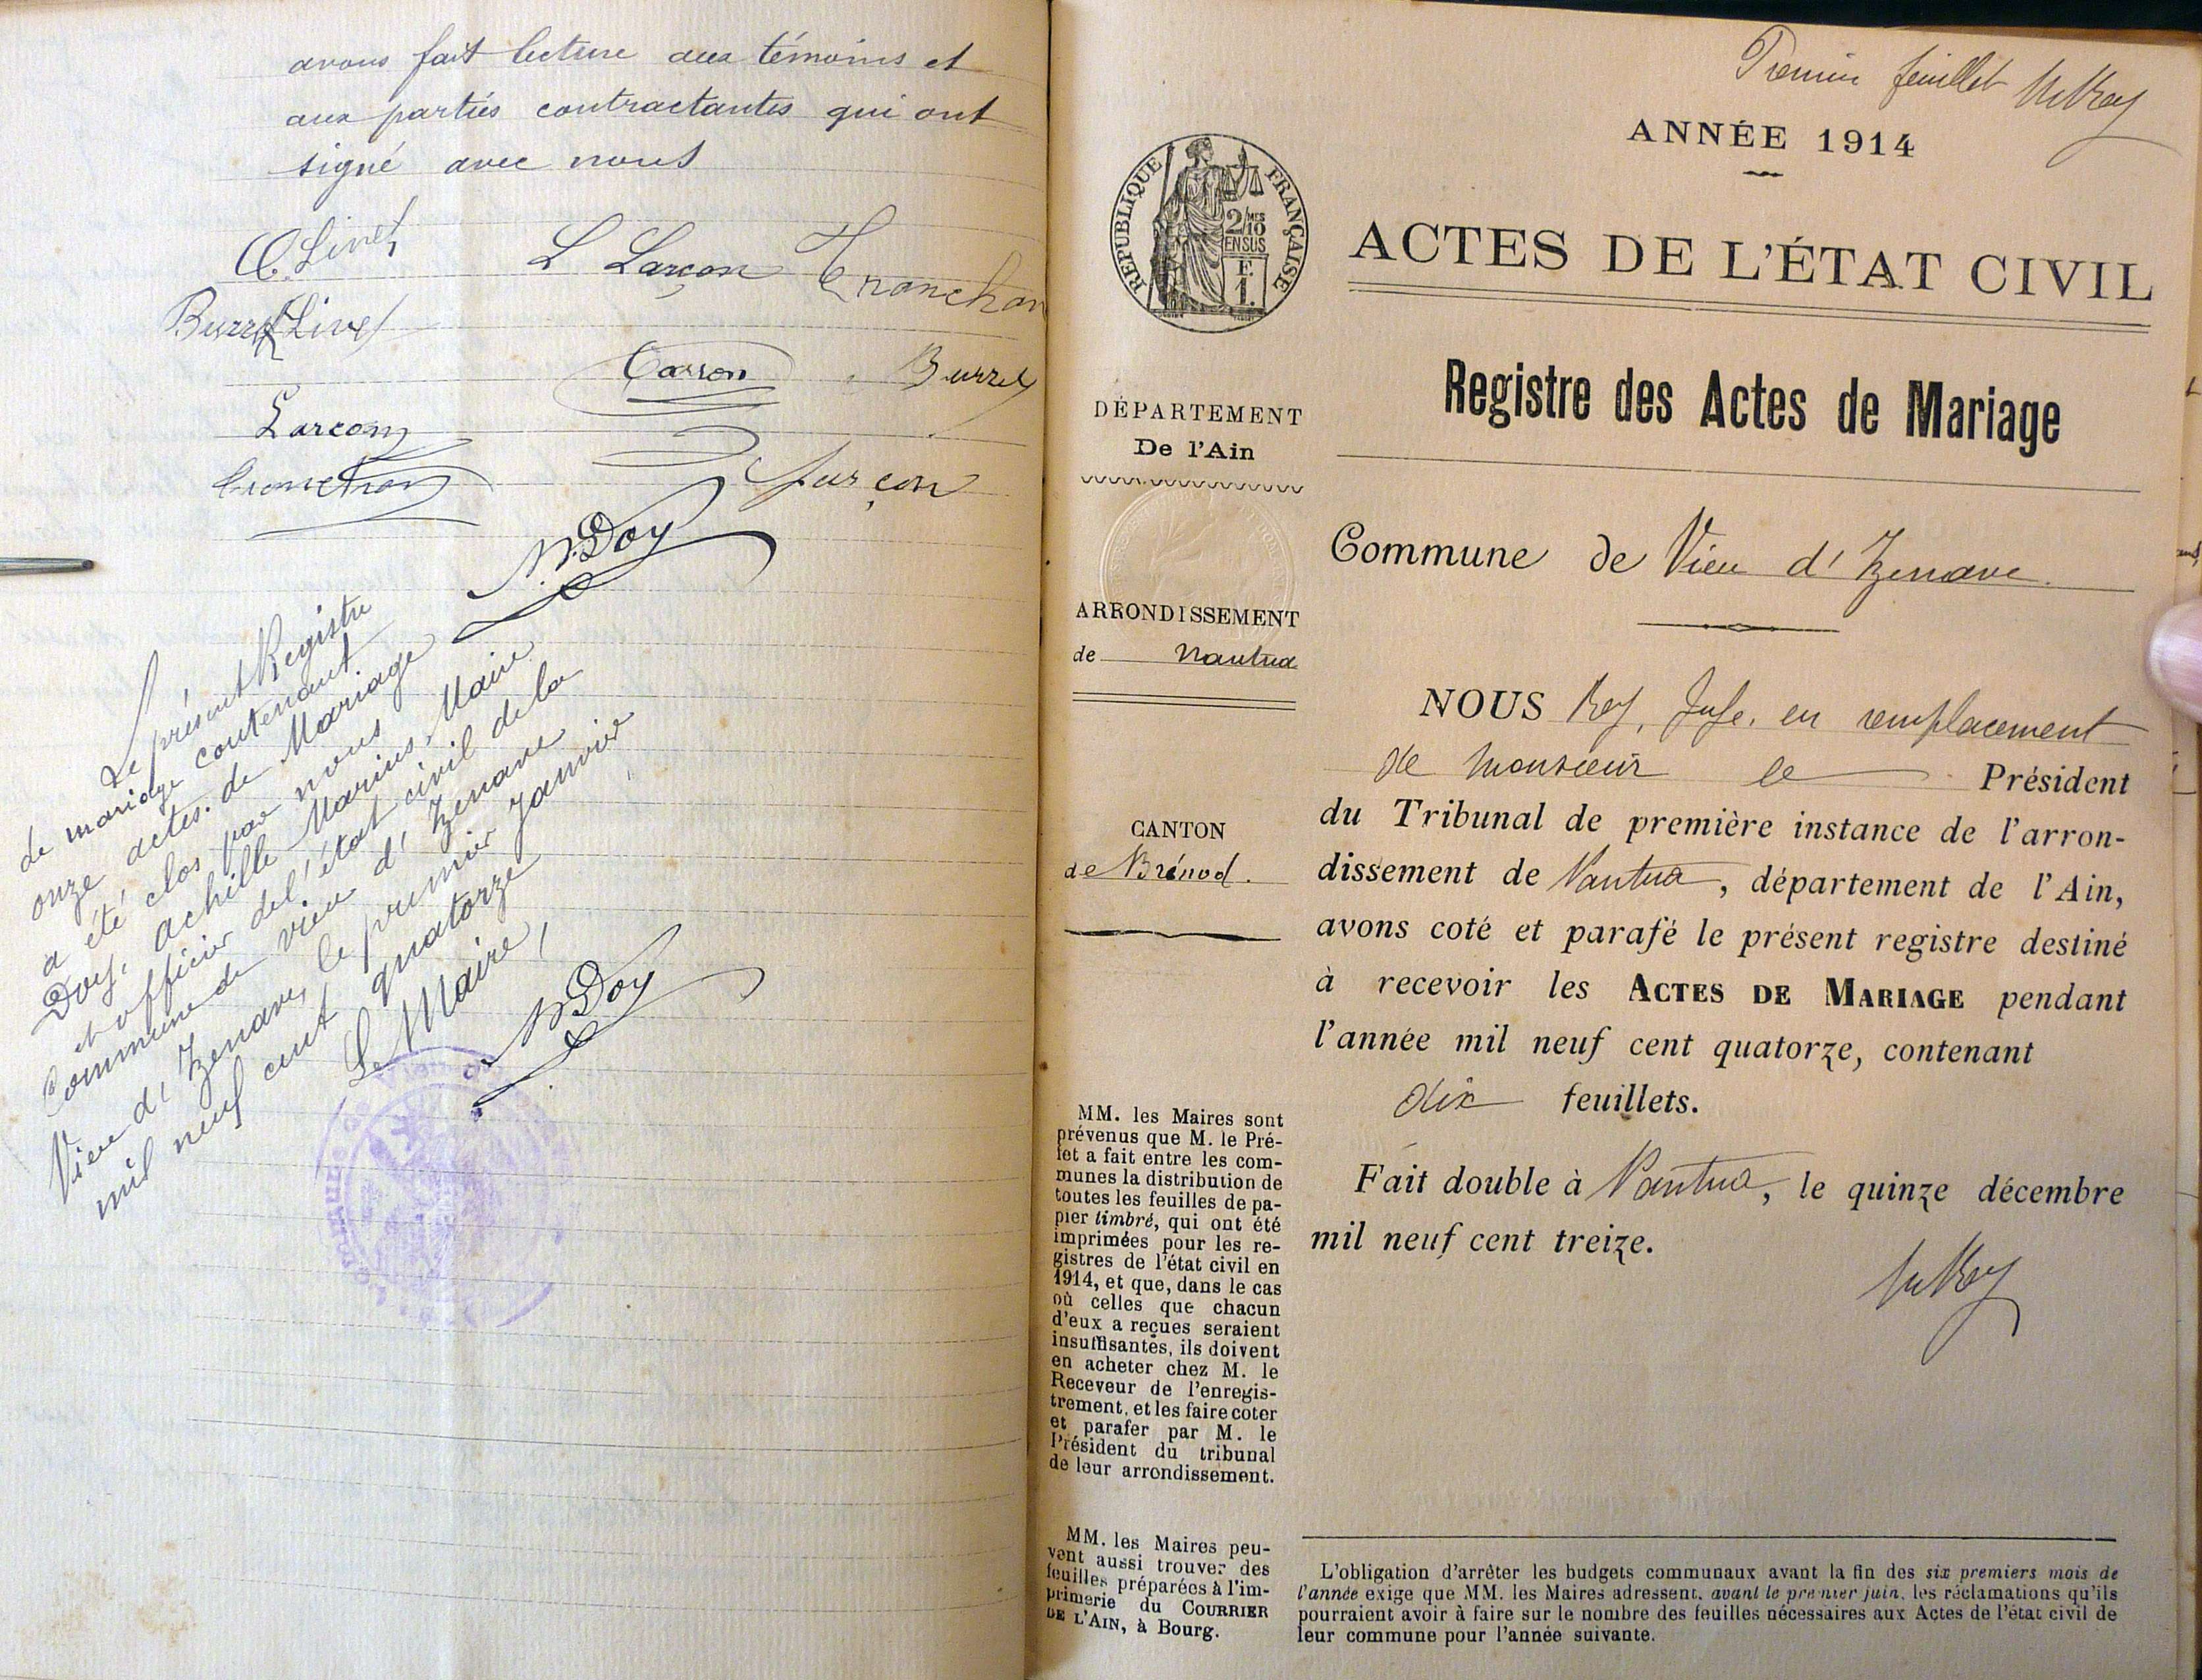 avons fait lecture aux témoins et
aux parties contractantes qui ont
signé avec nous
C. Livet
L Larçon
Tranchan
Burzet Livet
Carron
Burzet
Larçon
Tranchan
Larçon
M. Doy
Le présent Registre
de mariage contenant
onze actes. de Mariage
a été clos par nous
Doy, achille Marius, Maire
et officier de l'état civil de la
Commune de vieu d'Izenave
Vieu d'Izenave, le premier janvier
mil neuf cent quatorze
Le Maire,
M. Doy
Premier feuillet
ANNÉE 1914
RÉPUBLIQUE FRANÇAISE
2/10 MES
EN SUS
F
1.
ACTES DE L'ÉTAT CIVIL
Registre des Actes de Mariage
DÉPARTEMENT
De l'Ain
Commune de Vieu d'Izenave
ARRONDISSEMENT
de Nantua
CANTON
de Brénod.
NOUS Rey, Juge, en remplacement
de monsieur le Président
du Tribunal de première instance de l'arron-
dissement de Nantua, département de l'Ain,
avons coté et parafé le présent registre destiné
à recevoir les ACTES DE MARIAGE pendant
l'année mil neuf cent quatorze, contenant
dix feuillets.
Fait double à Nantua, le quinze décembre
mil neuf cent treize.
MM. les Maires sont
prévenus que M. le Pré-
fet a fait entre les com-
munes la distribution de
toutes les feuilles de pa-
pier timbré, qui ont été
imprimées pour les re-
gistres de l'état civil en
1914, et que, dans le cas
où celles que chacun
d'eux a reçues seraient
insuffisantes, ils doivent
en acheter chez M. le
Receveur de l'enregis-
trement, et les faire coter
et parafer par M. le
Président du tribunal
de leur arrondissement.
MM. les Maires peu-
vent aussi trouver des
feuilles préparées à l'im-
primerie du COURRIER
DE L'AIN, à Bourg.
L'obligation d'arrêter les budgets communaux avant la fin des six premiers mois de
l'année exige que MM. les Maires adressent, avant le premier juin, les réclamations qu'ils
pourraient avoir à faire sur le nombre des feuilles nécessaires aux Actes de l'état civil de
leur commune pour l'année suivante.